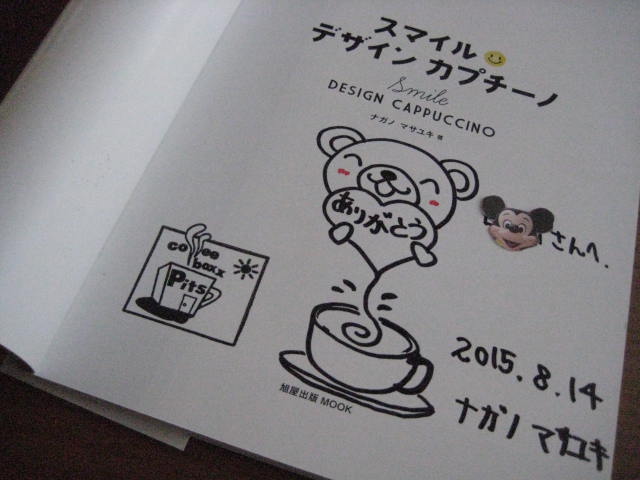 スマイル
デザイン カプチーノ
Smile
DESIGN CAPPUCCINO
ナガノ マサユキ 著
ありがとう
さんへ.
coffee
boxx
Pits
2015.8.14
ナガノ マサユキ
旭屋出版 MOOK